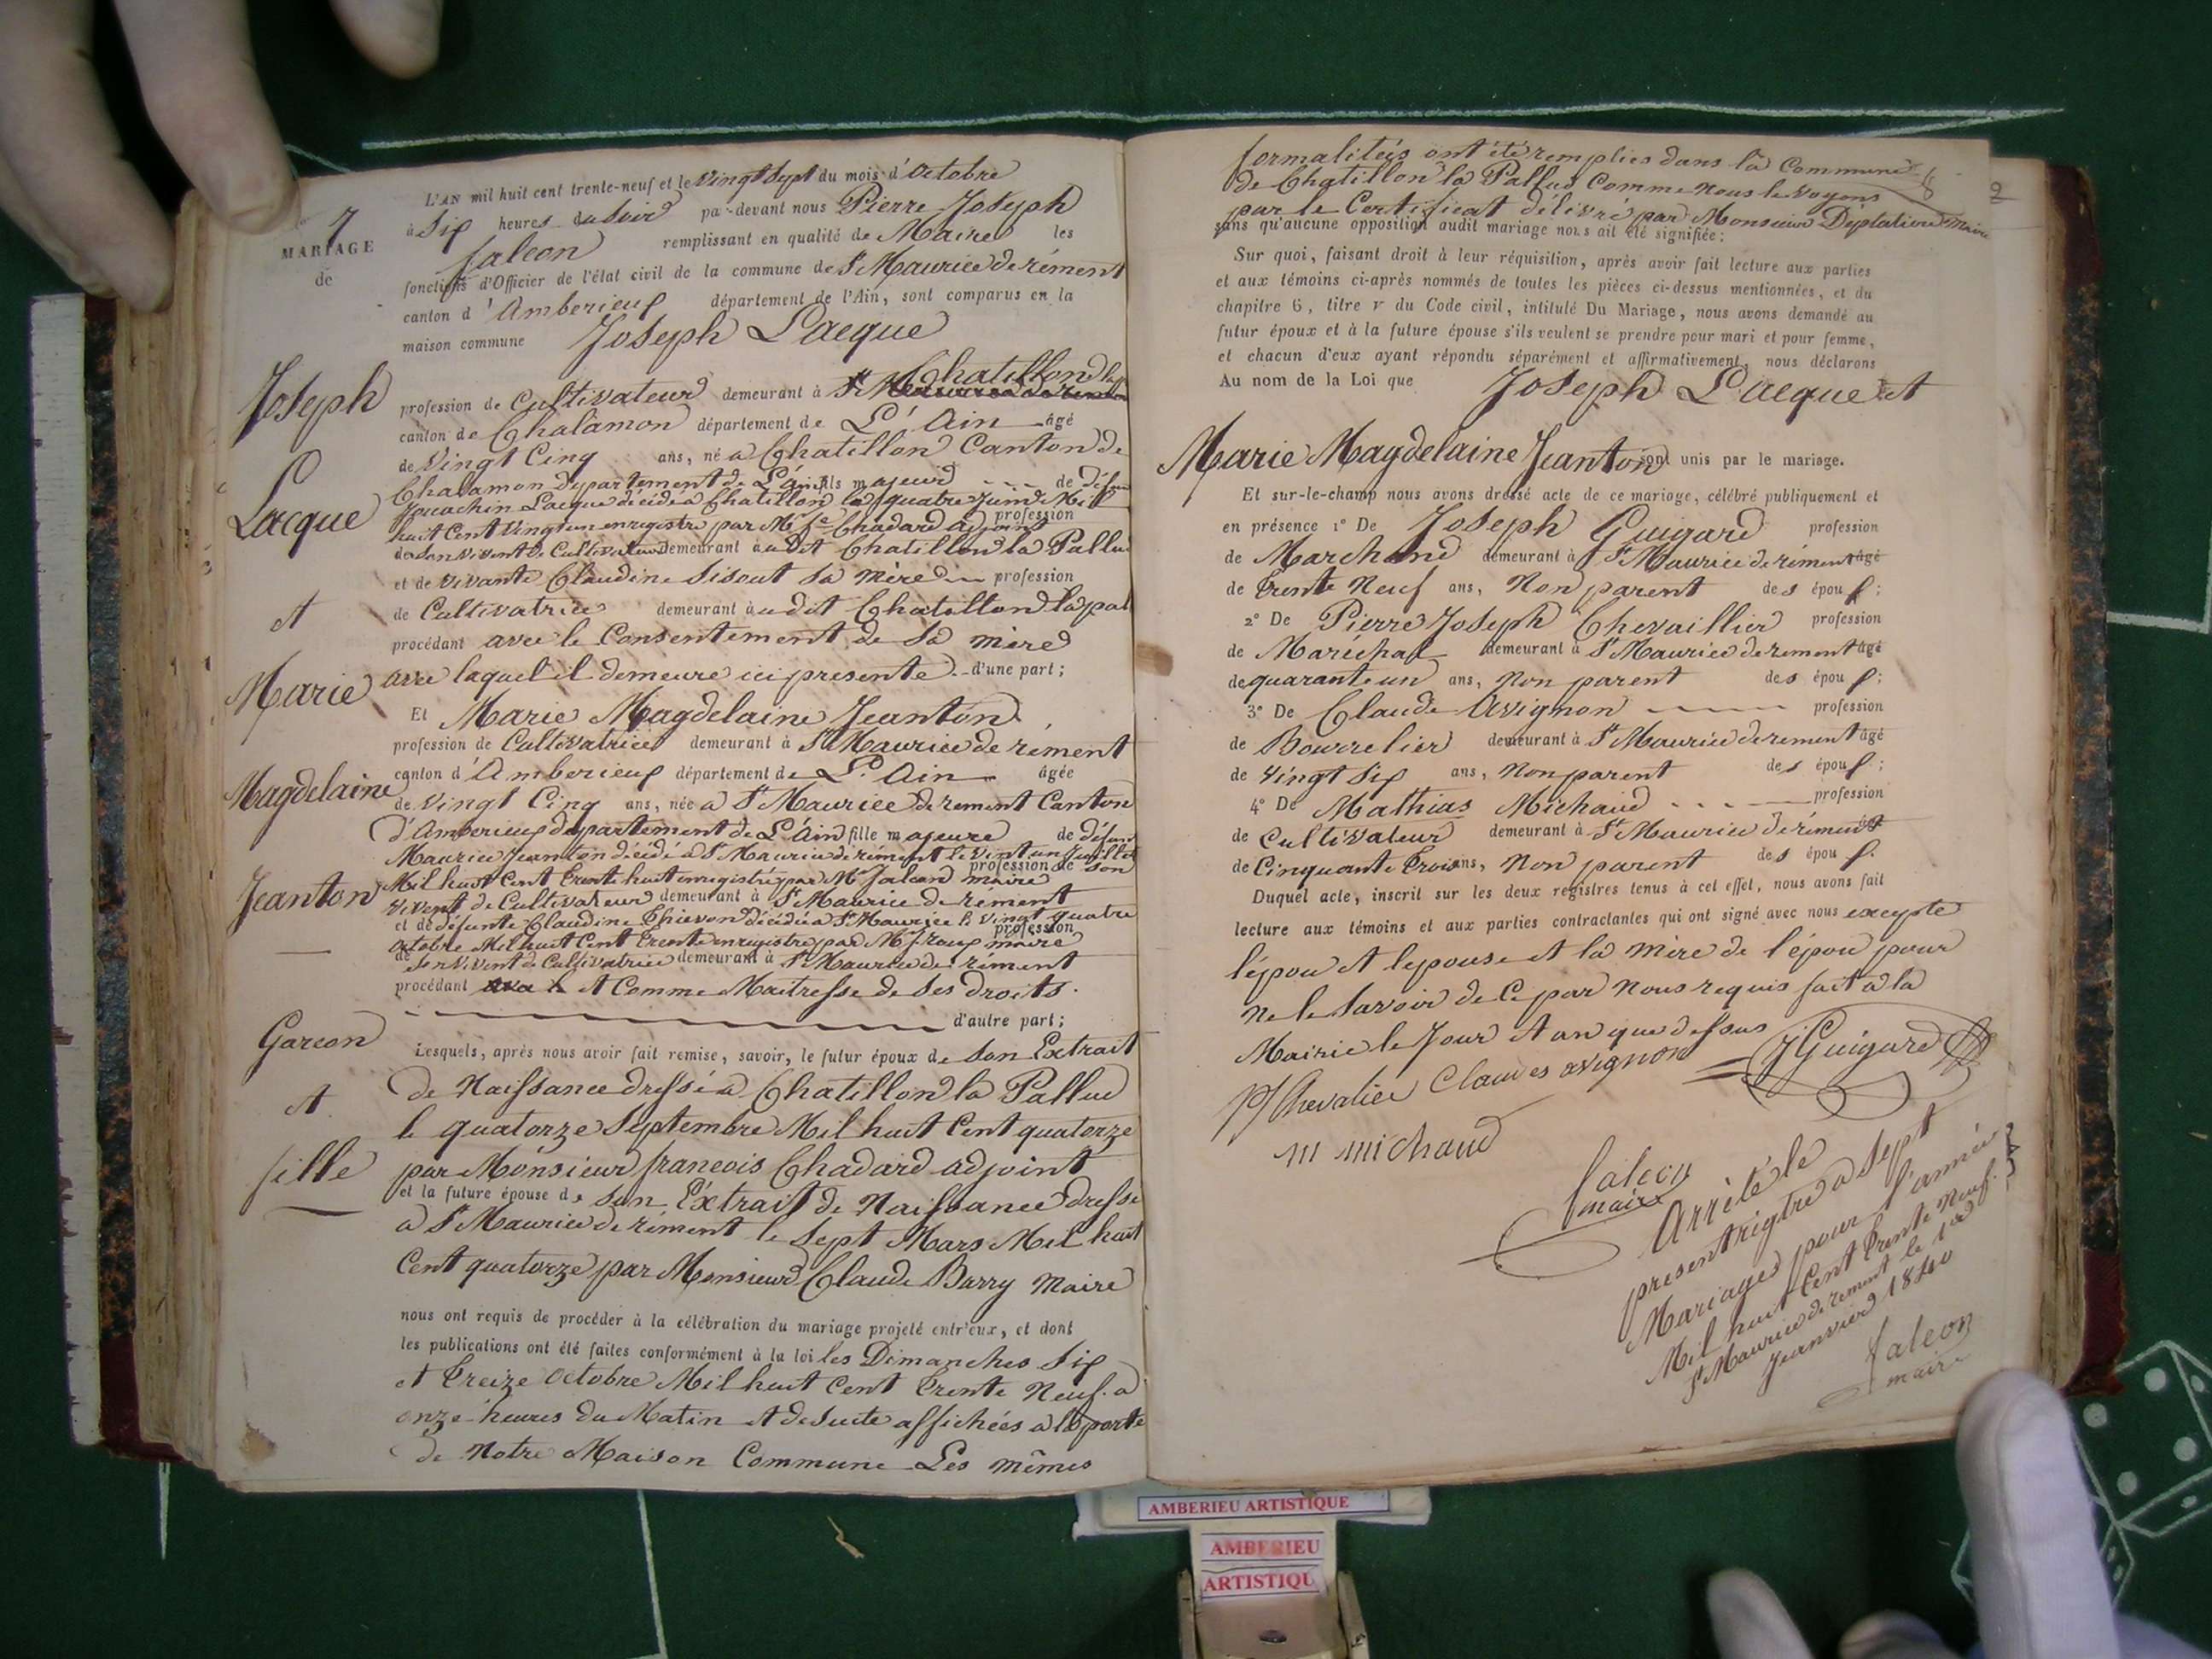 No 7
MARIAGE
de
Joseph
Lacque
et
Marie
Magdelaine
Jeanton
Garcon
et
fille
L'AN mil huit cent trente-neuf et le vingt Sept du mois d'Octobre
à Six heures du Soir par-devant nous Pierre Joseph
falcon remplissant en qualité de Maire les
fonctions d'Officier de l'état civil de la commune de St Maurice de rément
canton d'Amberieux département de l'Ain, sont comparus en la
maison commune Joseph Lacque
Chatillon la
profession de Cultivateur demeurant à
canton de Chalamon département de L'Ain âgé
de Vingt Cinq ans, né a Chatillon Canton de
Chalamon departement de L'Ain fils majeur de défunt
Joachin Lacque décédé a Chatillon le quatre Juin Mil
huit Cent Vingt un enregistré par Mr fs Chadard adjoint profession
de Son vivent de Cultivateur demeurant audit Chatillon la Pallud
et de vivante Claudine Sisout Sa mère profession
de Cultivatrice demeurant audit Chatillon la pal
procédant avec le Consentement de Sa mère
avec laquel il demeure ici presente d'une part;
Et Marie Magdelaine Jeanton
profession de Cultivatrice demeurant à St Maurice de rément
canton d'Amberieux département de L'Ain âgée
de Vingt Cinq ans, née a St Maurice de rement Canton
d'Amberieux departement de L'Ain fille majeure de défunt
Maurice Jeanton décédé a St Maurice de rément le Vint un Juillet
Mil huit Cent trente huit enregistré par Mr falcon maire profession de son
vivent de Cultivateur demeurant à St Maurice de rement
et de défunte Claudine Thievon décédée a St Maurice le vingt quatre
octobre Mil huit Cent trente enregistré par Mr froux maire profession
de Son vivent de Cultivatrice demeurant à St Maurice de rément
procédant et Comme Maitresse de Ses Droits.
d'autre part;
Lesquels, après nous avoir fait remise, savoir, le futur époux de Son Extrait
de Naissance dressé a Chatillon la Pallud
le quatorze Septembre Mil huit Cent quatorze
par Monsieur francois Chadard adjoint
et la future épouse de son Extrait de Naissance dressé
a St Maurice de rément le Sept Mars Mil huit
Cent quatorze par Monsieur Claude Barry Maire
nous ont requis de procéder à la célébration du mariage projeté entr'eux, et dont
les publications ont été faites conformément à la loi les Dimanches Six
et Treize Octobre Mil huit Cent trente Neuf. a
onze heures du Matin et de Suite affichées a la porte
de Notre Maison Commune Les mêmes
formalitées ont été remplies dans la Commune
de Chatillon la Pallud Comme nous le voyons
par le Certificat délivré par Monsieur Déplatiere Maire
8
2
sans qu'aucune opposition audit mariage nous ait été signifiée;
Sur quoi, faisant droit à leur réquisition, après avoir fait lecture aux parties
et aux témoins ci-après nommés de toutes les pièces ci-dessus mentionnées, et du
chapitre 6, titre v du Code civil, intitulé Du Mariage, nous avons demandé au
futur époux et à la future épouse s'ils veulent se prendre pour mari et pour femme,
et chacun d'eux ayant répondu séparément et affirmativement, nous déclarons
Au nom de la Loi que Joseph Lacque et
Marie Magdelaine Jeanton sont unis par le mariage.
Et sur-le-champ nous avons dressé acte de ce mariage, célébré publiquement et
en présence 1° De Joseph Guigard profession
de Marchand demeurant à St Maurice de rément âgé
de trente Neuf ans, Non parent des époux;
2° De Pierre Joseph Chevaillier profession
de Maréchal demeurant à St Maurice de rement âgé
de quarante un ans, Non parent des époux;
3° De Claude Avignon profession
de Bourrelier demeurant à St Maurice de rement âgé
de Vingt Six ans, Non parent des époux;
4° De Mathias Michaud profession
de Cultivateur demeurant à St Maurice de rément âgé
de Cinquante Trois ans, Non parent des époux.
Duquel acte, inscrit sur les deux registres tenus à cet effet, nous avons fait
lecture aux témoins et aux parties contractantes qui ont signé avec nous excepté
l'épou et lepouse et la Mère de l'épou pour
ne le Savoir de Ce par Nous requis fait a la
Mairie le Jour et an que dessus
J Guigard
PJ Chevalier Claudes avignon
m michaud
falcon
maire
Arrêté le
present rigtre a Sept
Mariages pour l'année
Mil huit Cent trente Neuf.
St Maurice de rement le 1er
Jeanvier 1840
falcon
maire
AMBERIEU ARTISTIQUE
AMBERIEU
ARTISTIQU